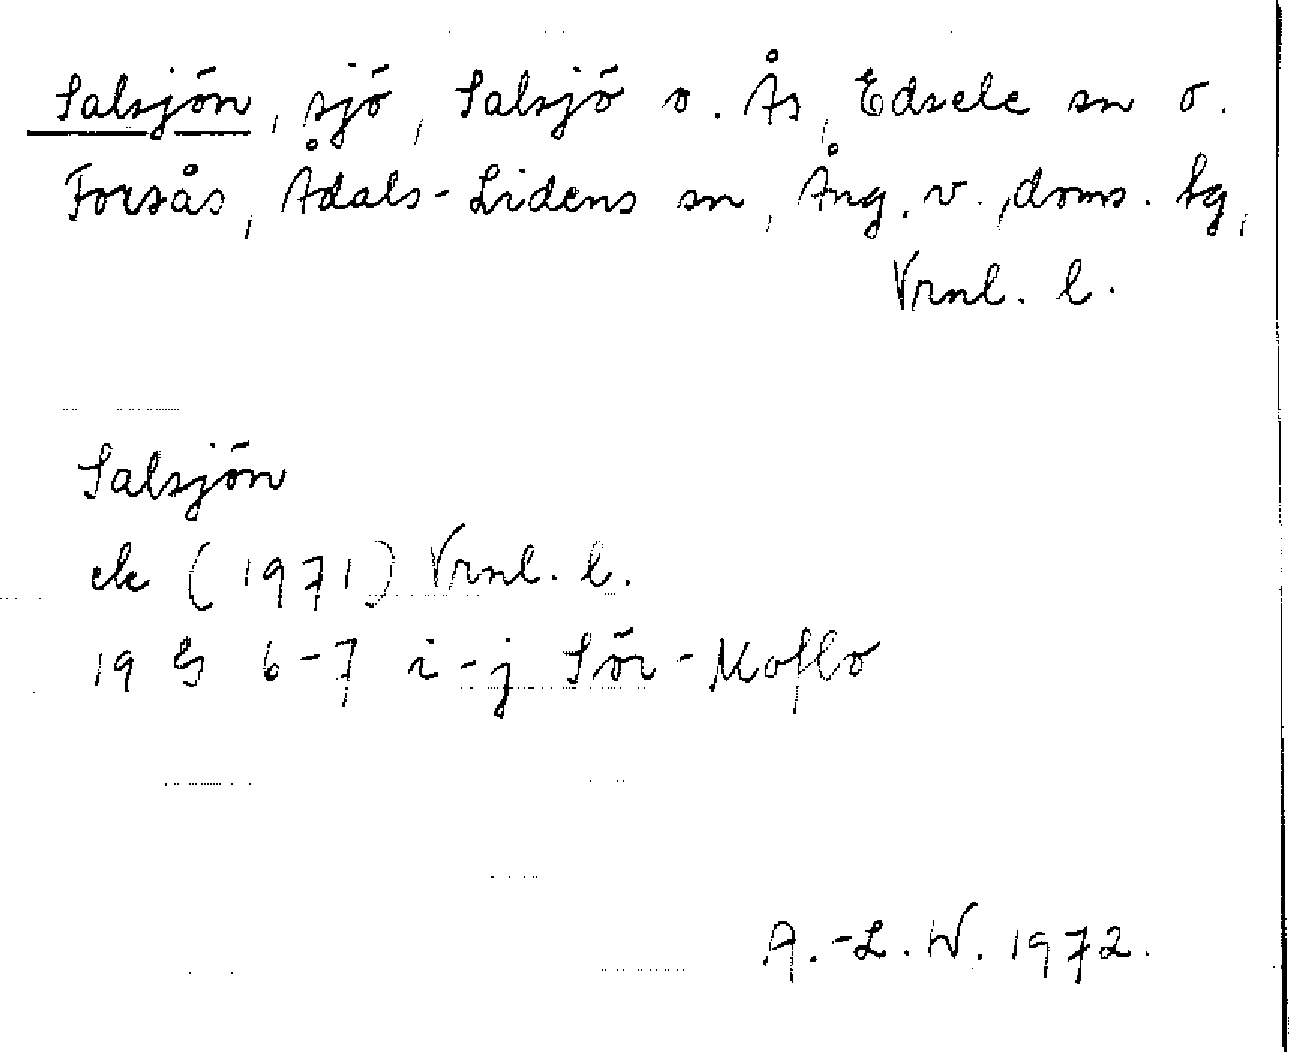 Salsjön, sjö, Salsjö o. Ås, Edsele sn o.
Forsås, Ådals-Lidens sn, Ång. v. doms. tg,
Vrnl. l.
Salsjön
ek (1971) Vrnl. l.
19 G 6-7 i-j Sör-Moflo
A.-L. W. 1972.